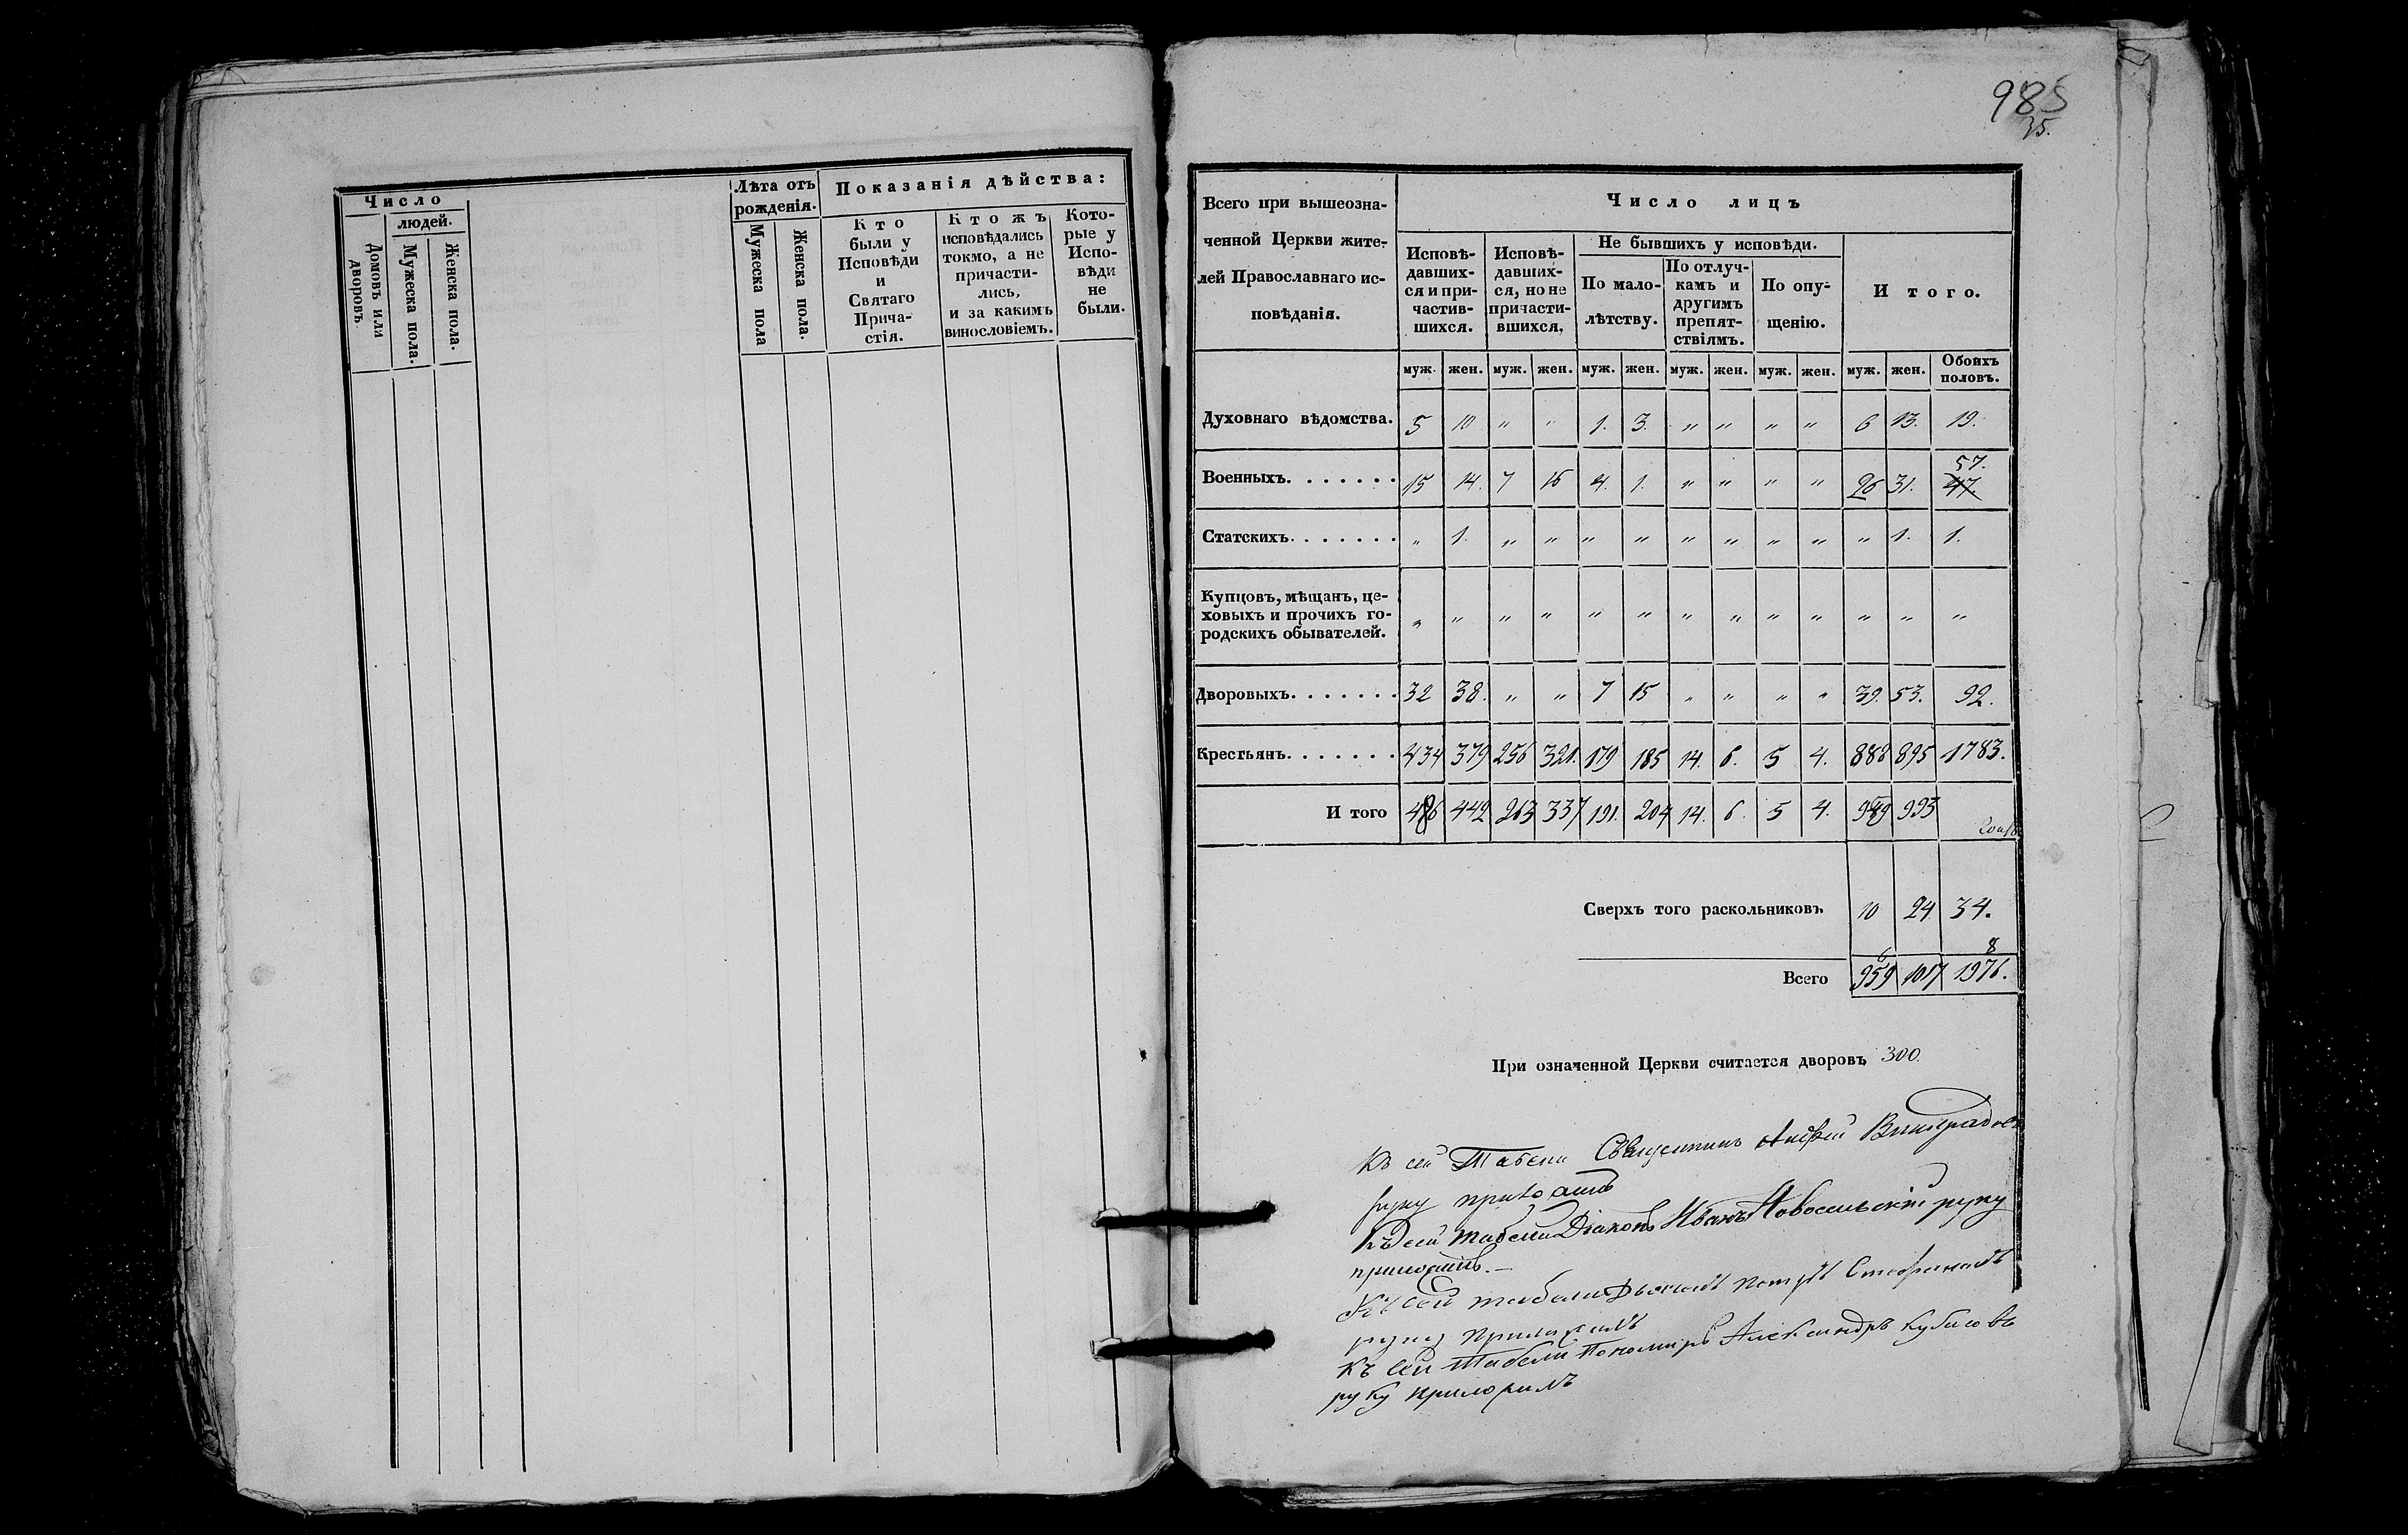 985
35.
Число
людей.
Домовъ или дворовъ
Мужеска пола.
Женска пола.
Лѣта отъ рожденія.
Мужеска пола
Женска пола.
Показанія дѣйства:
Кто были у Исповѣди и Святаго Прича-стія.
Ктожъ исповѣдались токмо, а не причасти-лись, и за какимъ винословіемъ.
Кото-рые у Испо-вѣди не были.
Всего при вышеозна-
ченной Церкви жите-
лей Православнаго ис-
повѣданія.
Число лицъ
Исповѣ-давших-ся и при-частив-шихся.
Исповѣ-давших-ся, но не причасти-вшихся.
Не бывшихъ у исповѣди.
По мало-лѣтству.
По отлуч-камъ и другимъ препят-ствіямъ.
По опу-щенію.
Итого.
муж. жен. муж. жен. муж. жен. муж. жен. муж. жен. муж. жен. Обоихъ половъ.
Духовнаго вѣдомства. 5 10 „ „ 1. 3. „ „ „ „ 6 13. 19.
57.
Военныхъ. . . . . . . 15 14. 7 16 4. 1. „ „ „ „ 26 31. 47.
Статскихъ. . . . . . . „ 1. „ „ „ „ „ „ „ „ „ 1. 1.
Купцовъ, мѣщанъ, це-
ховыхъ и прочихъ го-
родскихъ обывателей. „ „ „ „ „ „ „ „ „ „ „ „ „
Дворовыхъ. . . . . . . 32 38. „ „ 7 15 „ „ „ „ 39. 53. 92.
Крестьянъ. . . . . . . 434 379 256 321. 179 185 14. 6. 5 4. 888 895 1783.
И того 486 442 263 337 191. 204 14. 6. 5 4. 959 993
Сверхъ того раскольниковъ 10 24 34.
Всего 959 1017 1976.
При означенной Церкви считается дворовъ 300.
Къ сей Табели Священникъ Андрей Виноградовъ
руку приложилъ
Къ сей табели Діаконъ Иванъ Новосельскій руку
приложилъ.
Къ сей табели Дьячекъ Петръ
руку приложилъ
Къ сей Табели Пономарь Александръ
руку приложилъ